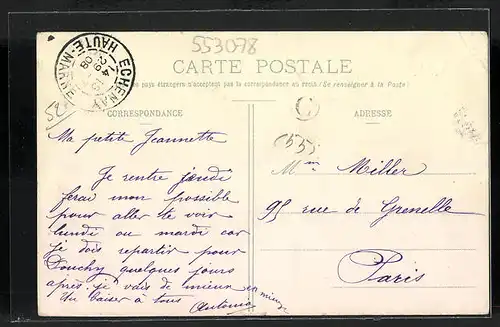 553078
ECHENAY
HAUTE-MARNE
CARTE POSTALE
pays étrangers n'acceptent pas la correspondance au recto (Se renseigner à la Poste)
52
C
555
CORRESPONDANCE
ADRESSE
Ma petite Jeannette
Je rentre jeudi
ferai mon possible
pour aller te voir
lundi ou mardi car
je dois repartir pour
Douchy quelques jours
après. je vais de mieux en mieux
Un baiser à tous
Antonia
Mme Miller
95 rue de Grenelle
Paris